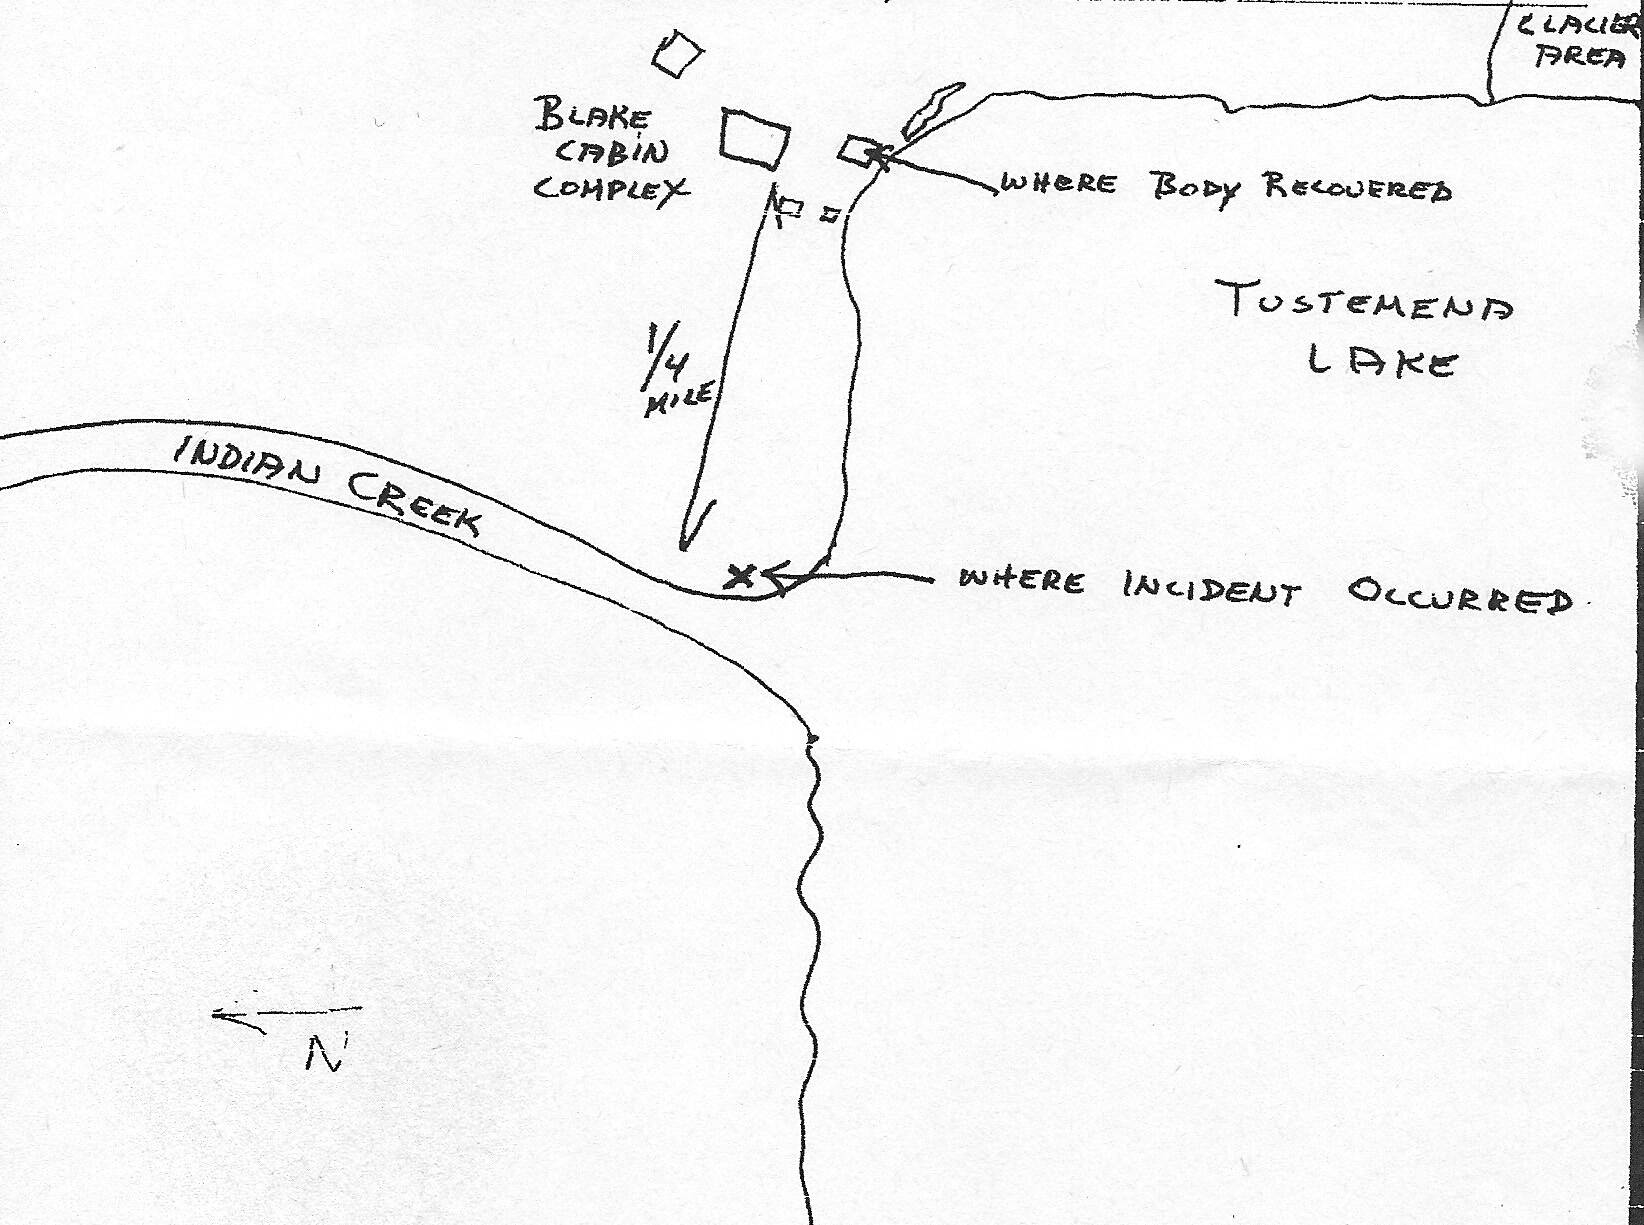 GLACIER
AREA
BLAKE
CABIN
COMPLEX
WHERE BODY RECOVERED
TUSTEMENA
LAKE
1/4
MILE
INDIAN CREEK
WHERE INCIDENT OCCURRED
N